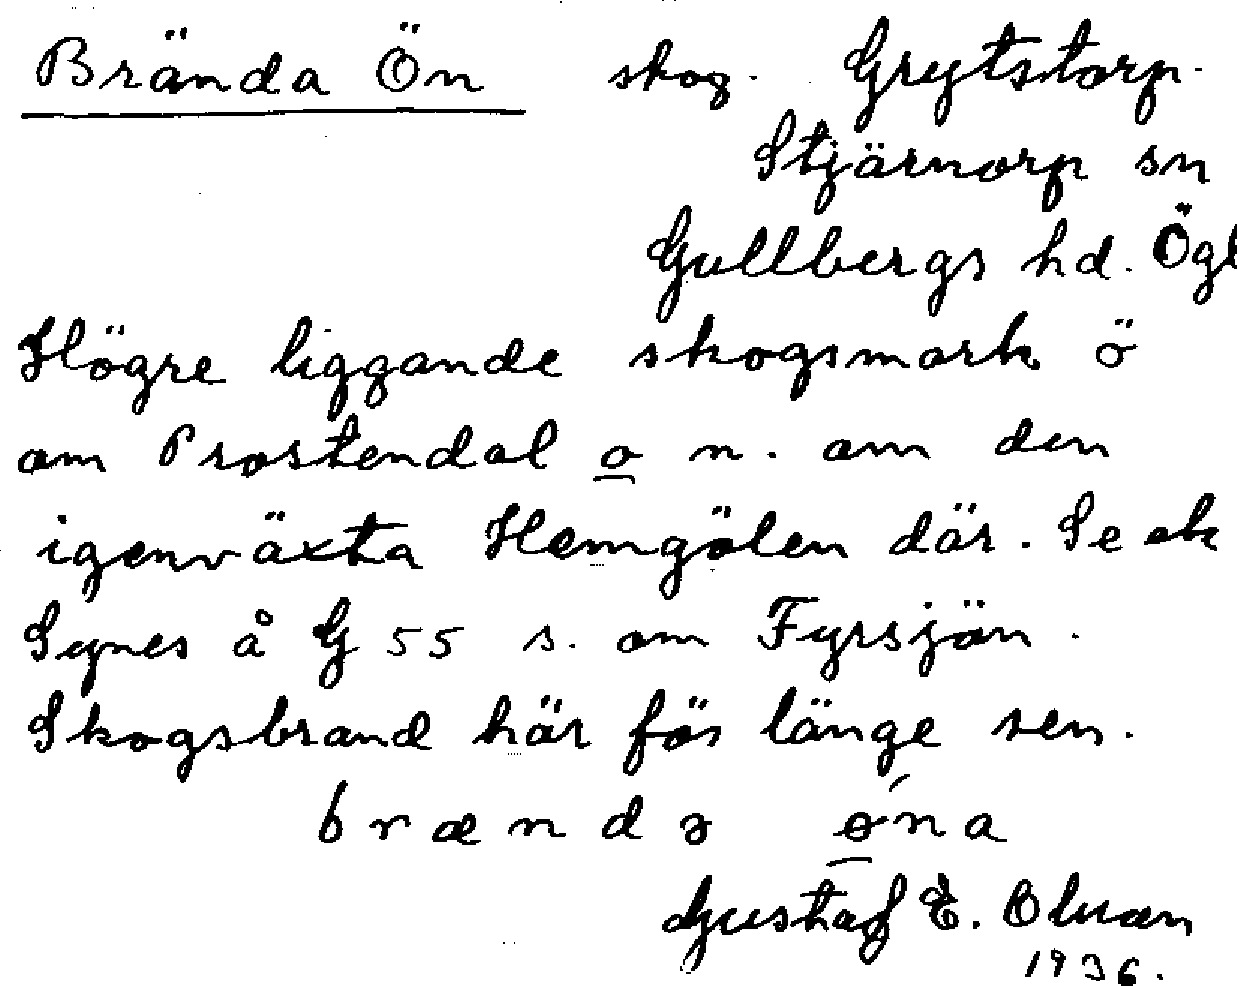 Brända Ön skog. Grytstorp.
Stjärnorp sn
Gullbergs hd. Ögl
Högre liggande skogsmark ö
om Prostendal o n. om den
igenväxta Hemgölen där. Se ek
Synes å G 55 s. om Fyrsjön.
Skogsbrand här för länge sen.
brændə ǿna
Gustaf E. Olsson
1936.